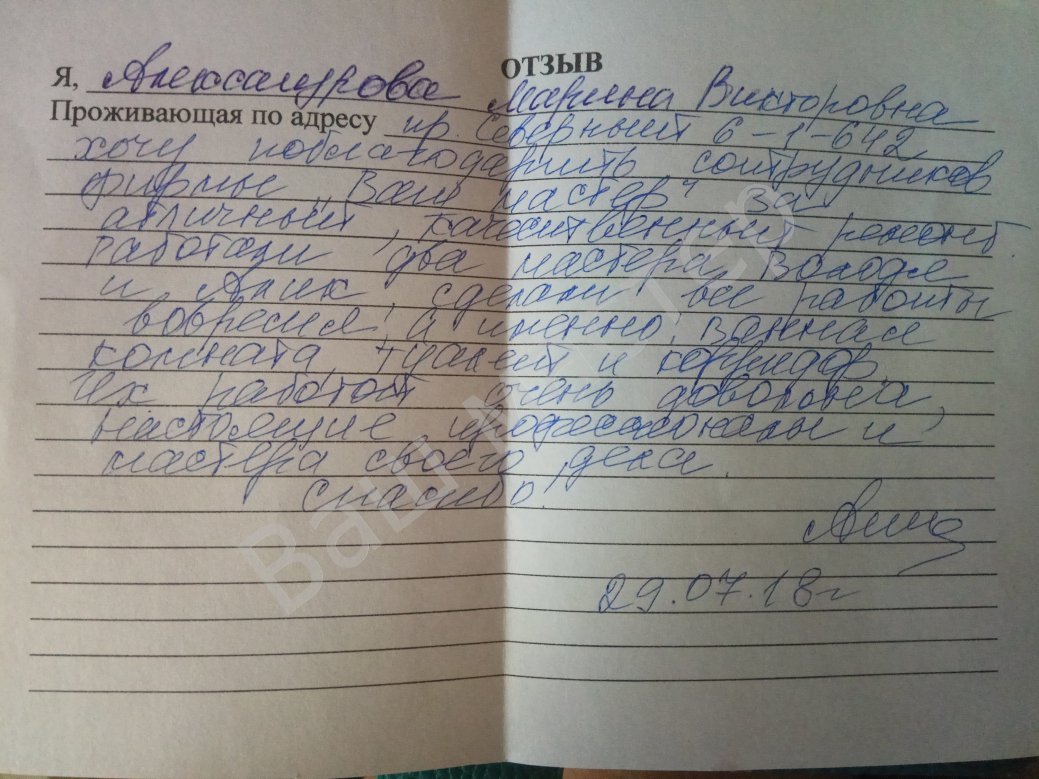 ОТЗЫВ
Я, Александрова Марина Викторовна
Проживающая по адресу пр. Северный 6-1-642
хочу поблагодарить сотрудников
фирмы "Ваш мастер" за
отличный, качественный ремонт
работали два мастера Володя
и Алик, сделали все работы
вовремя, а именно: ванная
комната, туалет и коридор.
Их работой очень довольна,
настоящие профессионалы и
мастера своего дела.
Спасибо.
29.07.18г
Ваш Мастер